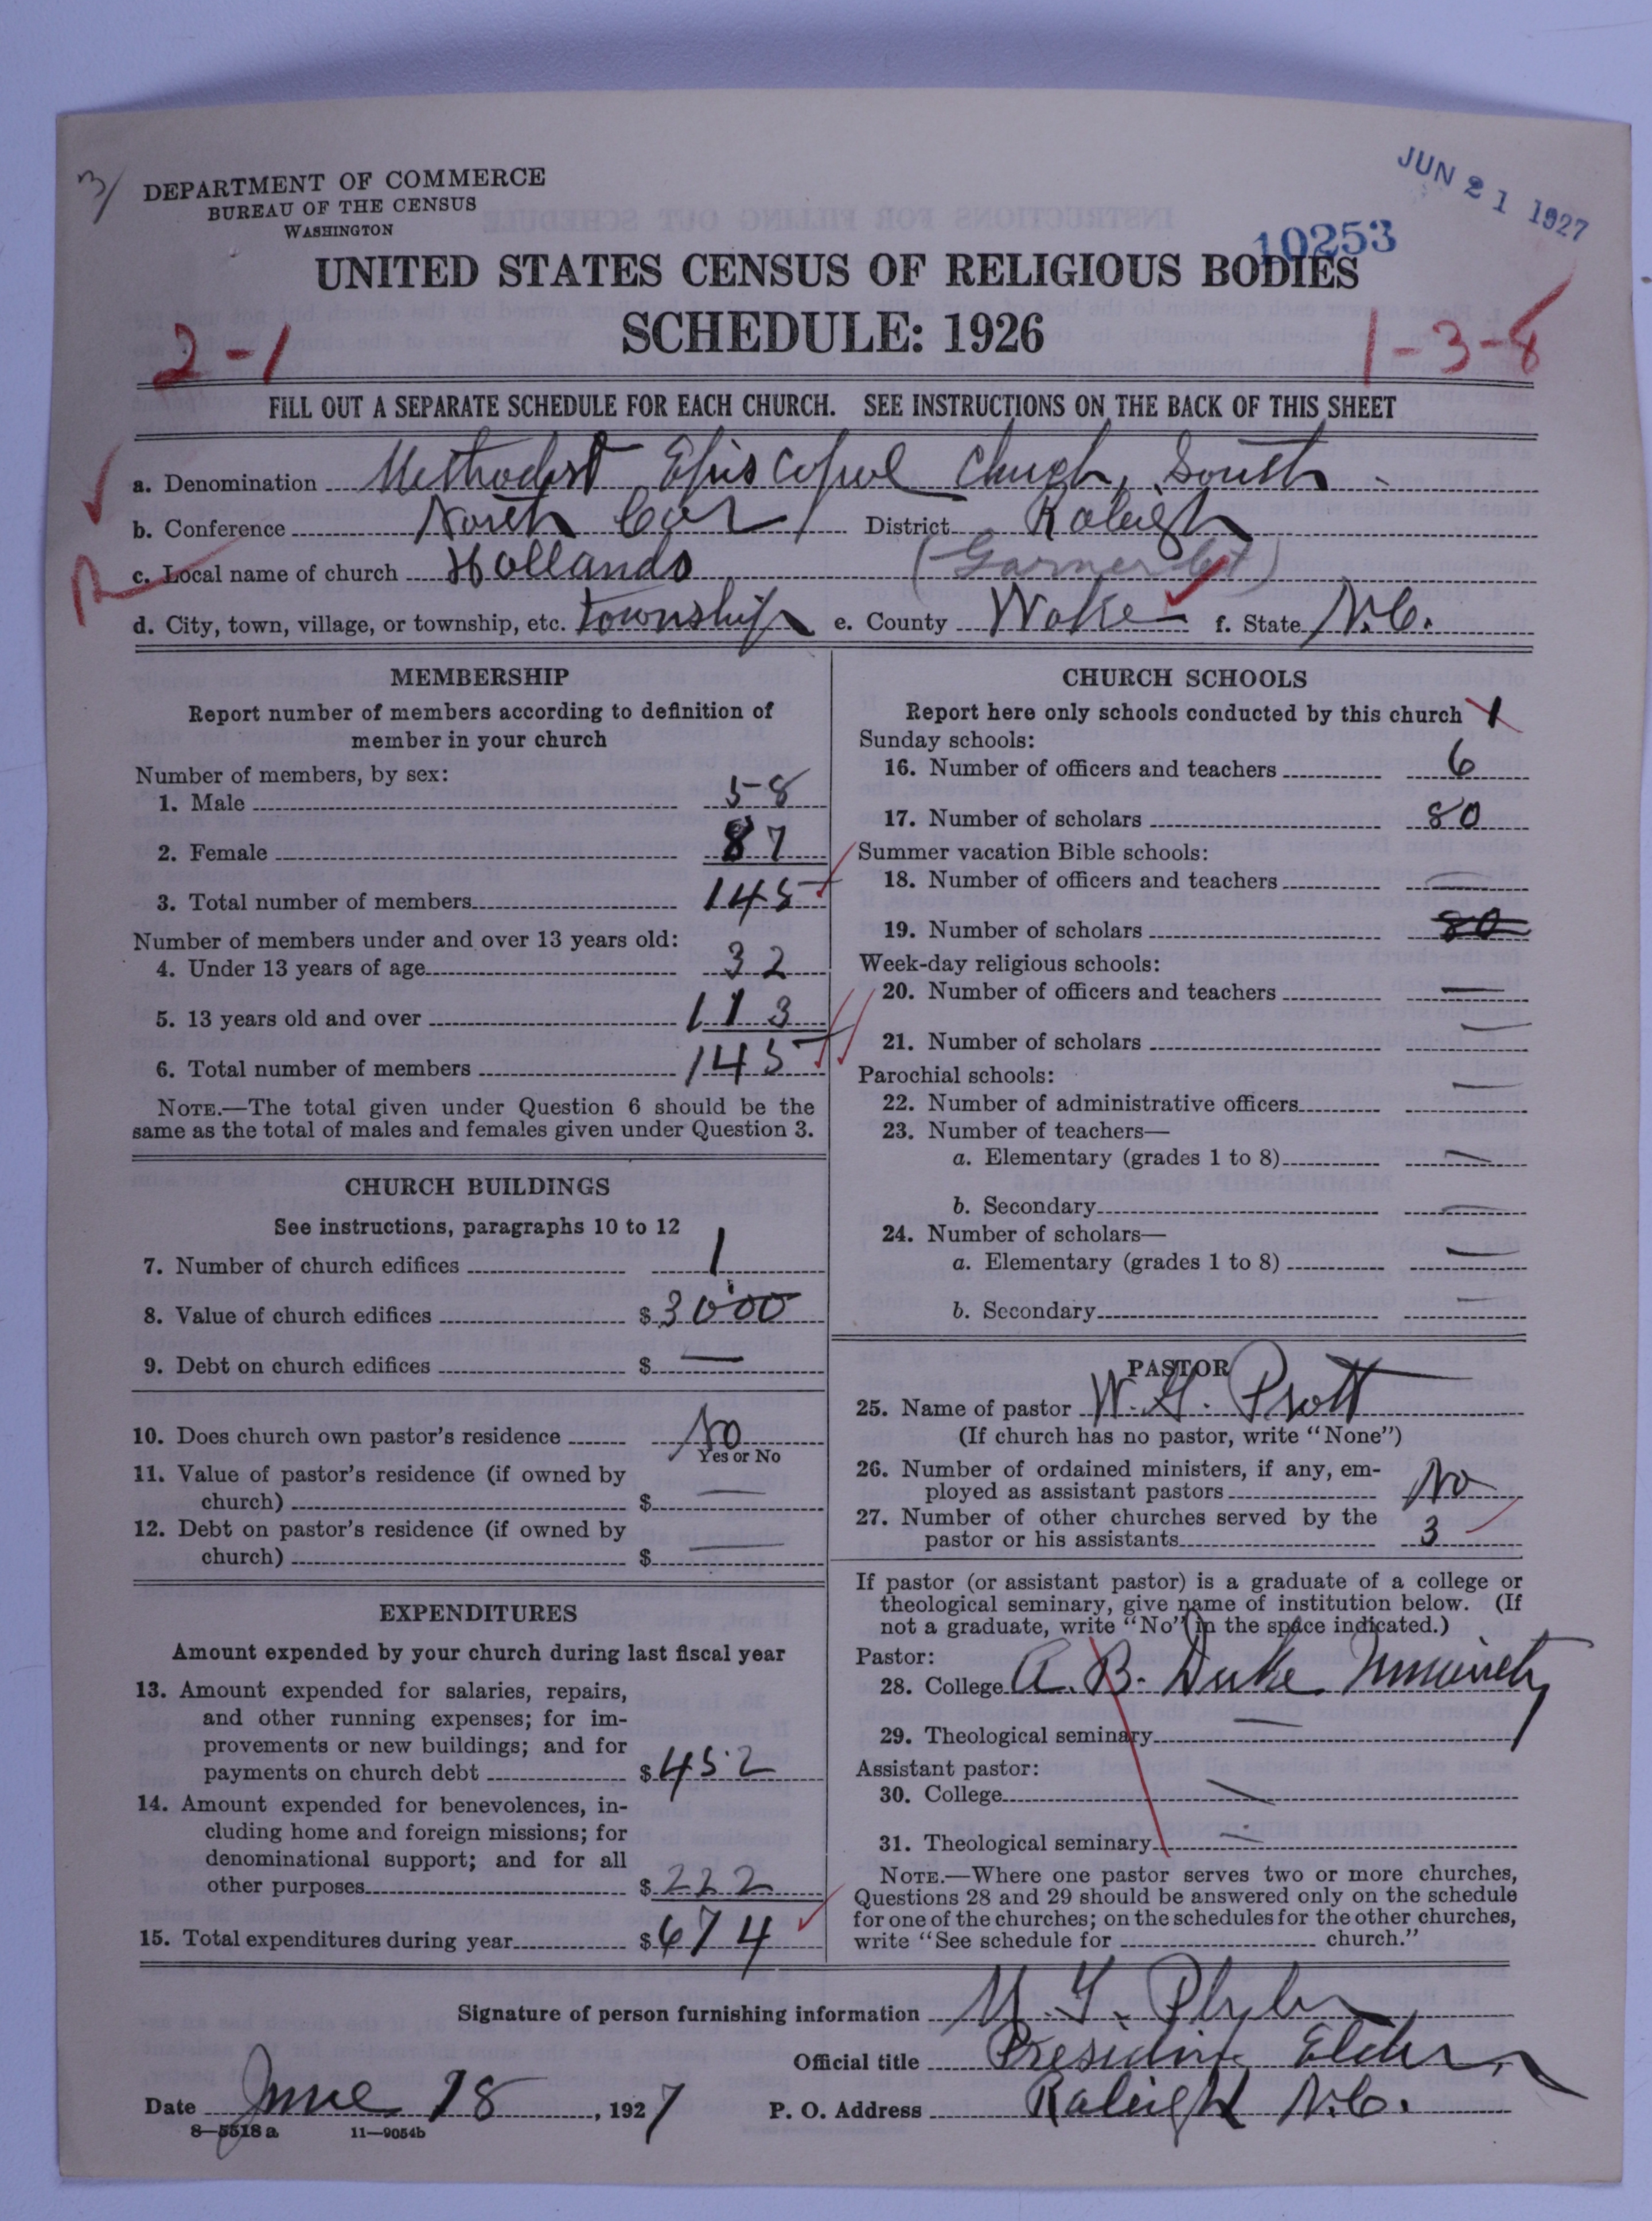 3/
DEPARTMENT OF COMMERCE
BUREAU OF THE CENSUS
WASHINGTON
JUN 21 1927
10253
UNITED STATES CENSUS OF RELIGIOUS BODIES
SCHEDULE: 1926
2-1
1-3-8
FILL OUT A SEPARATE SCHEDULE FOR EACH CHURCH. SEE INSTRUCTIONS ON THE BACK OF THIS SHEET
a. Denomination Methodist Episcopal Church, South
b. Conference North Car District Raleigh
R
c. Local name of church Hollands (Garner Ct)
d. City, town, village, or township, etc. township e. County Wake f. State N.C.
MEMBERSHIP
Report number of members according to definition of
member in your church
Number of members, by sex:
1. Male 58
2. Female 87
3. Total number of members 145
Number of members under and over 13 years old:
4. Under 13 years of age 32
5. 13 years old and over 113
6. Total number of members 145
NOTE.—The total given under Question 6 should be the
same as the total of males and females given under Question 3.
CHURCH BUILDINGS
See instructions, paragraphs 10 to 12
7. Number of church edifices 1
8. Value of church edifices $3000
9. Debt on church edifices $ —
10. Does church own pastor's residence No
Yes or No
11. Value of pastor's residence (if owned by
church) $ —
12. Debt on pastor's residence (if owned by
church) $ —
EXPENDITURES
Amount expended by your church during last fiscal year
13. Amount expended for salaries, repairs,
and other running expenses; for im-
provements or new buildings; and for
payments on church debt $452
14. Amount expended for benevolences, in-
cluding home and foreign missions; for
denominational support; and for all
other purposes $222
15. Total expenditures during year $674
CHURCH SCHOOLS
Report here only schools conducted by this church 1
Sunday schools:
16. Number of officers and teachers 6
17. Number of scholars 80
Summer vacation Bible schools:
18. Number of officers and teachers —
19. Number of scholars 80
Week-day religious schools:
20. Number of officers and teachers —
21. Number of scholars —
Parochial schools:
22. Number of administrative officers —
23. Number of teachers—
a. Elementary (grades 1 to 8) —
b. Secondary —
24. Number of scholars—
a. Elementary (grades 1 to 8) —
b. Secondary —
PASTOR
25. Name of pastor W. G. Pratt
(If church has no pastor, write "None")
26. Number of ordained ministers, if any, em-
ployed as assistant pastors No
27. Number of other churches served by the
pastor or his assistants 3
If pastor (or assistant pastor) is a graduate of a college or
theological seminary, give name of institution below. (If
not a graduate, write "No" in the space indicated.)
Pastor:
28. College A. B. Duke University
29. Theological seminary —
Assistant pastor:
30. College —
31. Theological seminary —
NOTE.—Where one pastor serves two or more churches,
Questions 28 and 29 should be answered only on the schedule
for one of the churches; on the schedules for the other churches,
write "See schedule for church."
Signature of person furnishing information M. T. Plyler
Official title Presiding Elder
Date June 18, 1927 P. O. Address Raleigh N.C.
8—5518 a 11—9054b